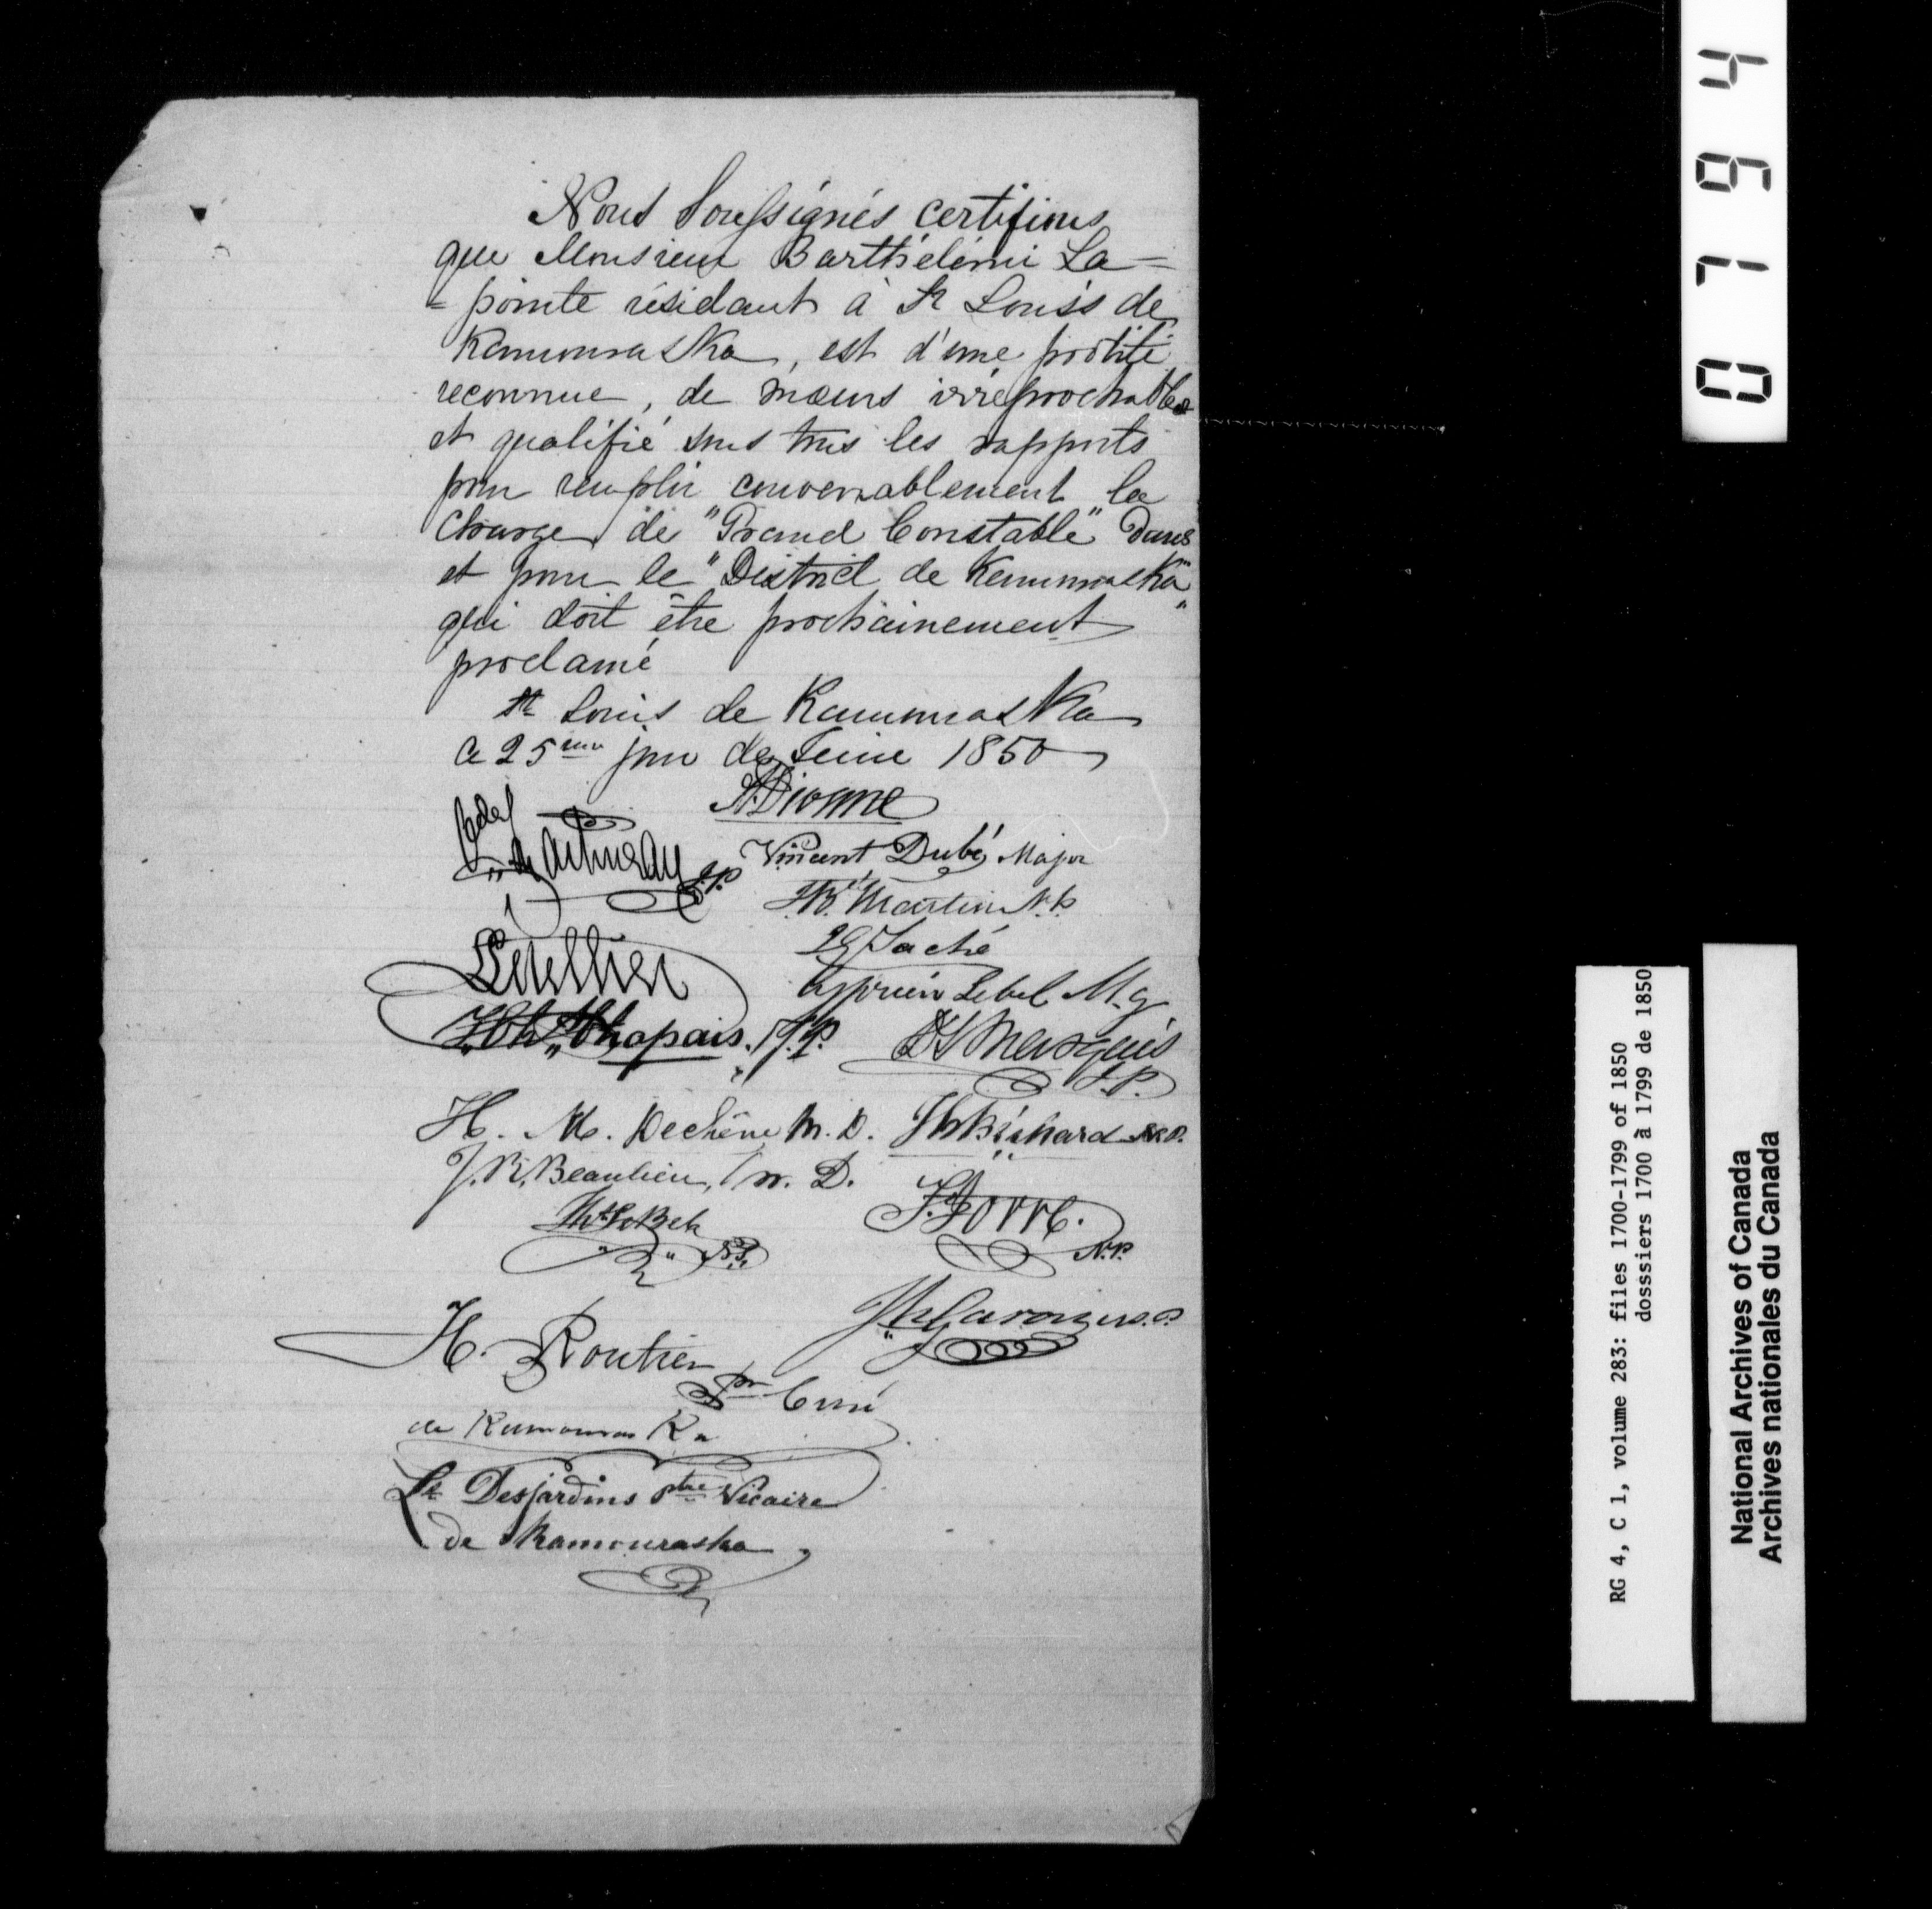 Nous Soussignés certifions
que Monsieur Barthélémi La=
=pointe résidant à St Louis de
Kamouraska, est d'une probité
reconnue, de mœurs irréprochables
et qualifié sous tous les rapports
pour remplir convenablement la
charge de "Grand Constable" dans
et pour le "District de Kamouraska"
qui doit être prochainement
proclamé
St Louis de Kamouraska
ce 25me jour de Juin 1850
A. Dionne
J.P.
Vincent Dubé Major
J.B. Martin N.P.
Taché
Letellier
Cyprien Lebel M.
J. Ch. Chapais. J.P.
Marquis
J.P.
H. M. Dechêne M.D.
J. R. Beaulieu, M.D.
N.P.
H. Routier
Ptr Curé
de Kamouraska
Ls Desjardins Ptre Vicaire
de Kamouraska
0794
RG 4, C 1, volume 283: files 1700-1799 of 1850
dosssiers 1700 à 1799 de 1850
National Archives of Canada
Archives nationales du Canada